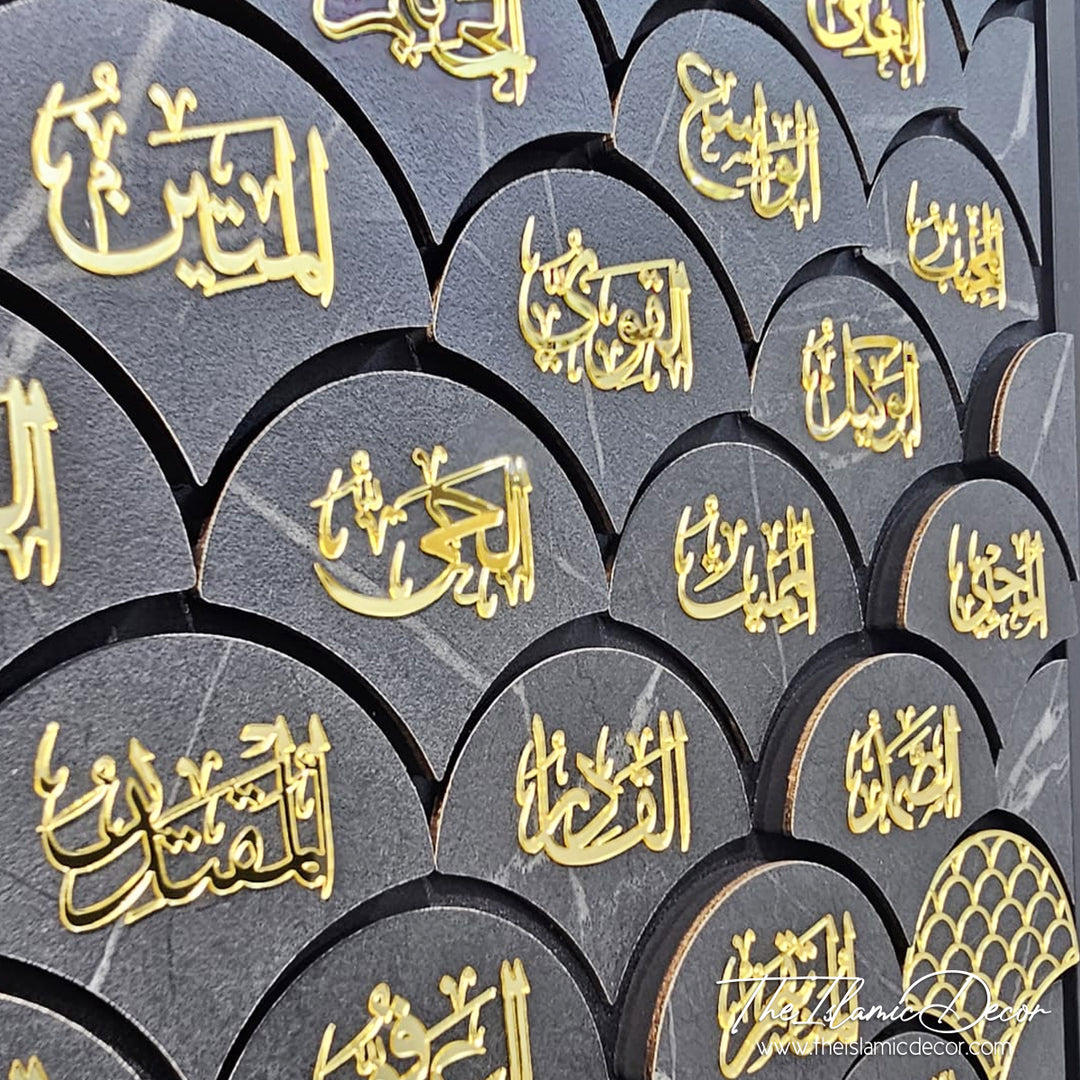 الواسع
المجيب
المتين
القوي
الوكيل
الحي
المميت
المحيي
المقتدر
القادر
الصمد
TheIslamicDecor
www.theislamicdecor.com